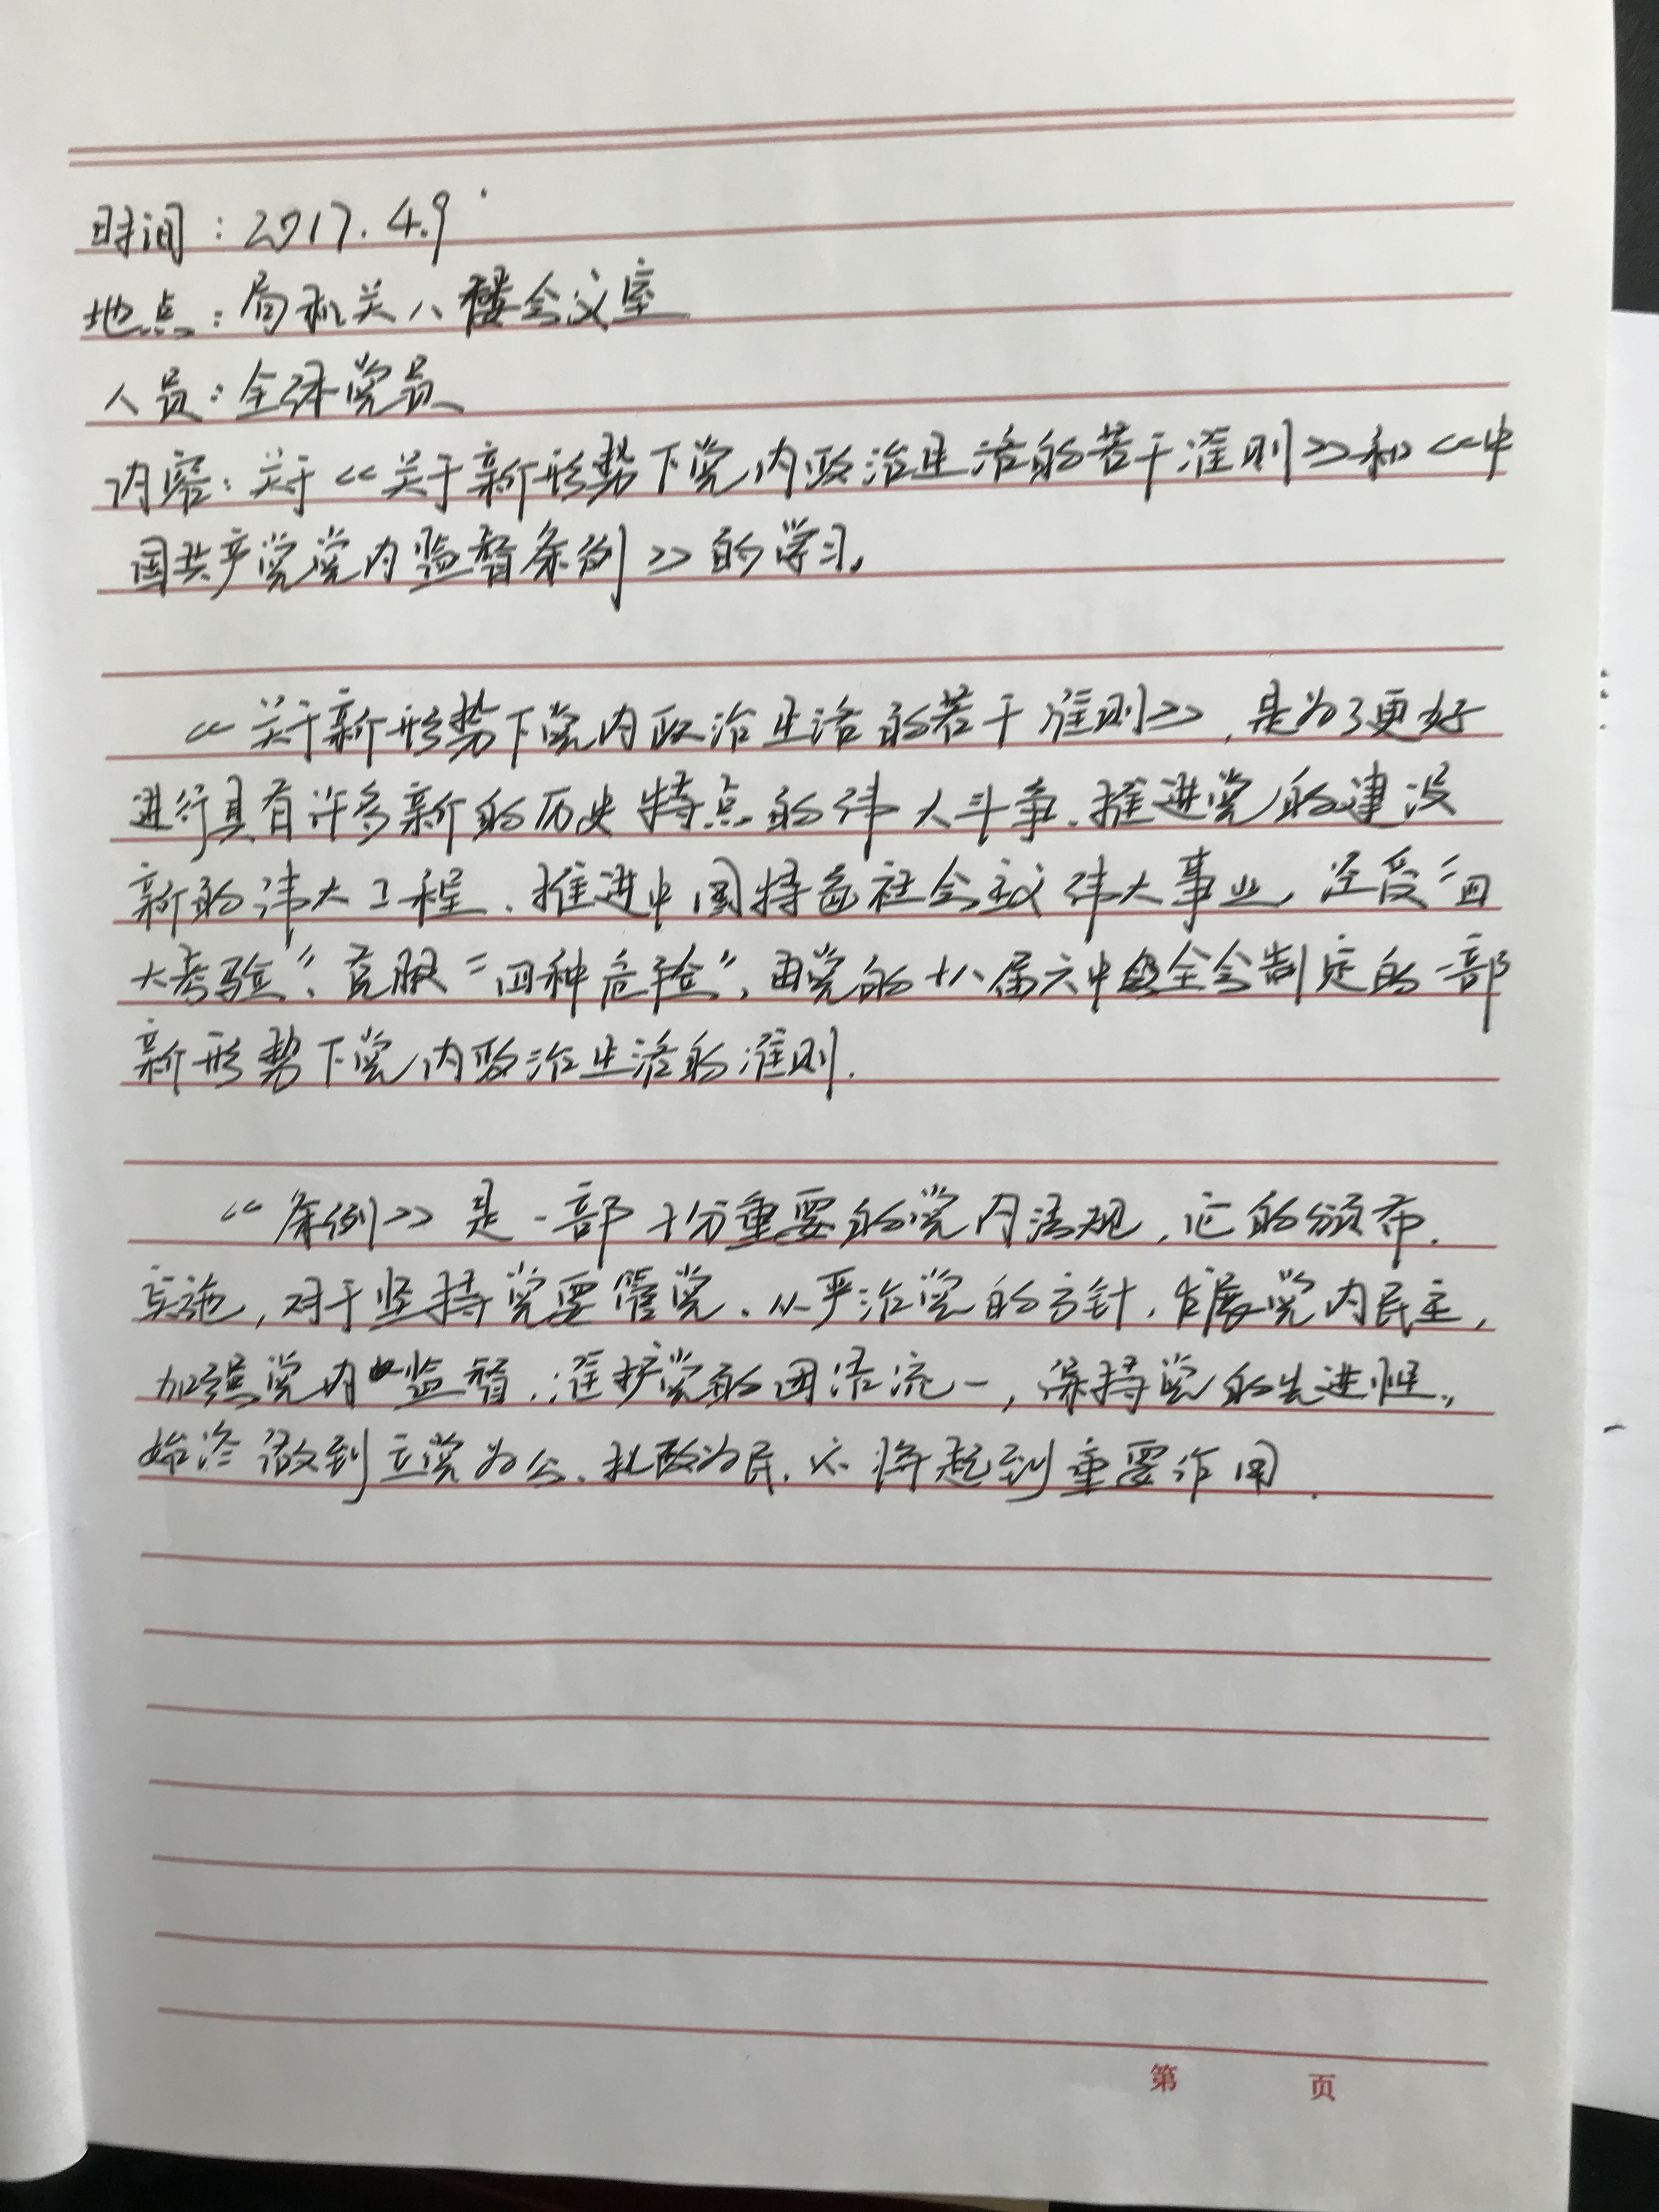 时间：2017.4.9
地点：局机关八楼会议室
人员：全体党员
内容：关于《关于新形势下党内政治生活的若干准则》和《中
国共产党党内监督条例》的学习。
《关于新形势下党内政治生活的若干准则》，是为了更好
进行具有许多新的历史特点的伟大斗争、推进党的建设
新的伟大工程、推进中国特色社会主义伟大事业，经受“四
大考验”、克服“四种危险”，由党的十八届六中全会制定的一部
新形势下党内政治生活的准则.
《条例》是一部十分重要的党内法规，它的颁布、
实施，对于坚持党要管党、从严治党的方针，发展党内民主，
加强党内监督，维护党的团结统一，保持党的先进性，
始终做到立党为公、执政为民，必将起到重要作用.
第 页